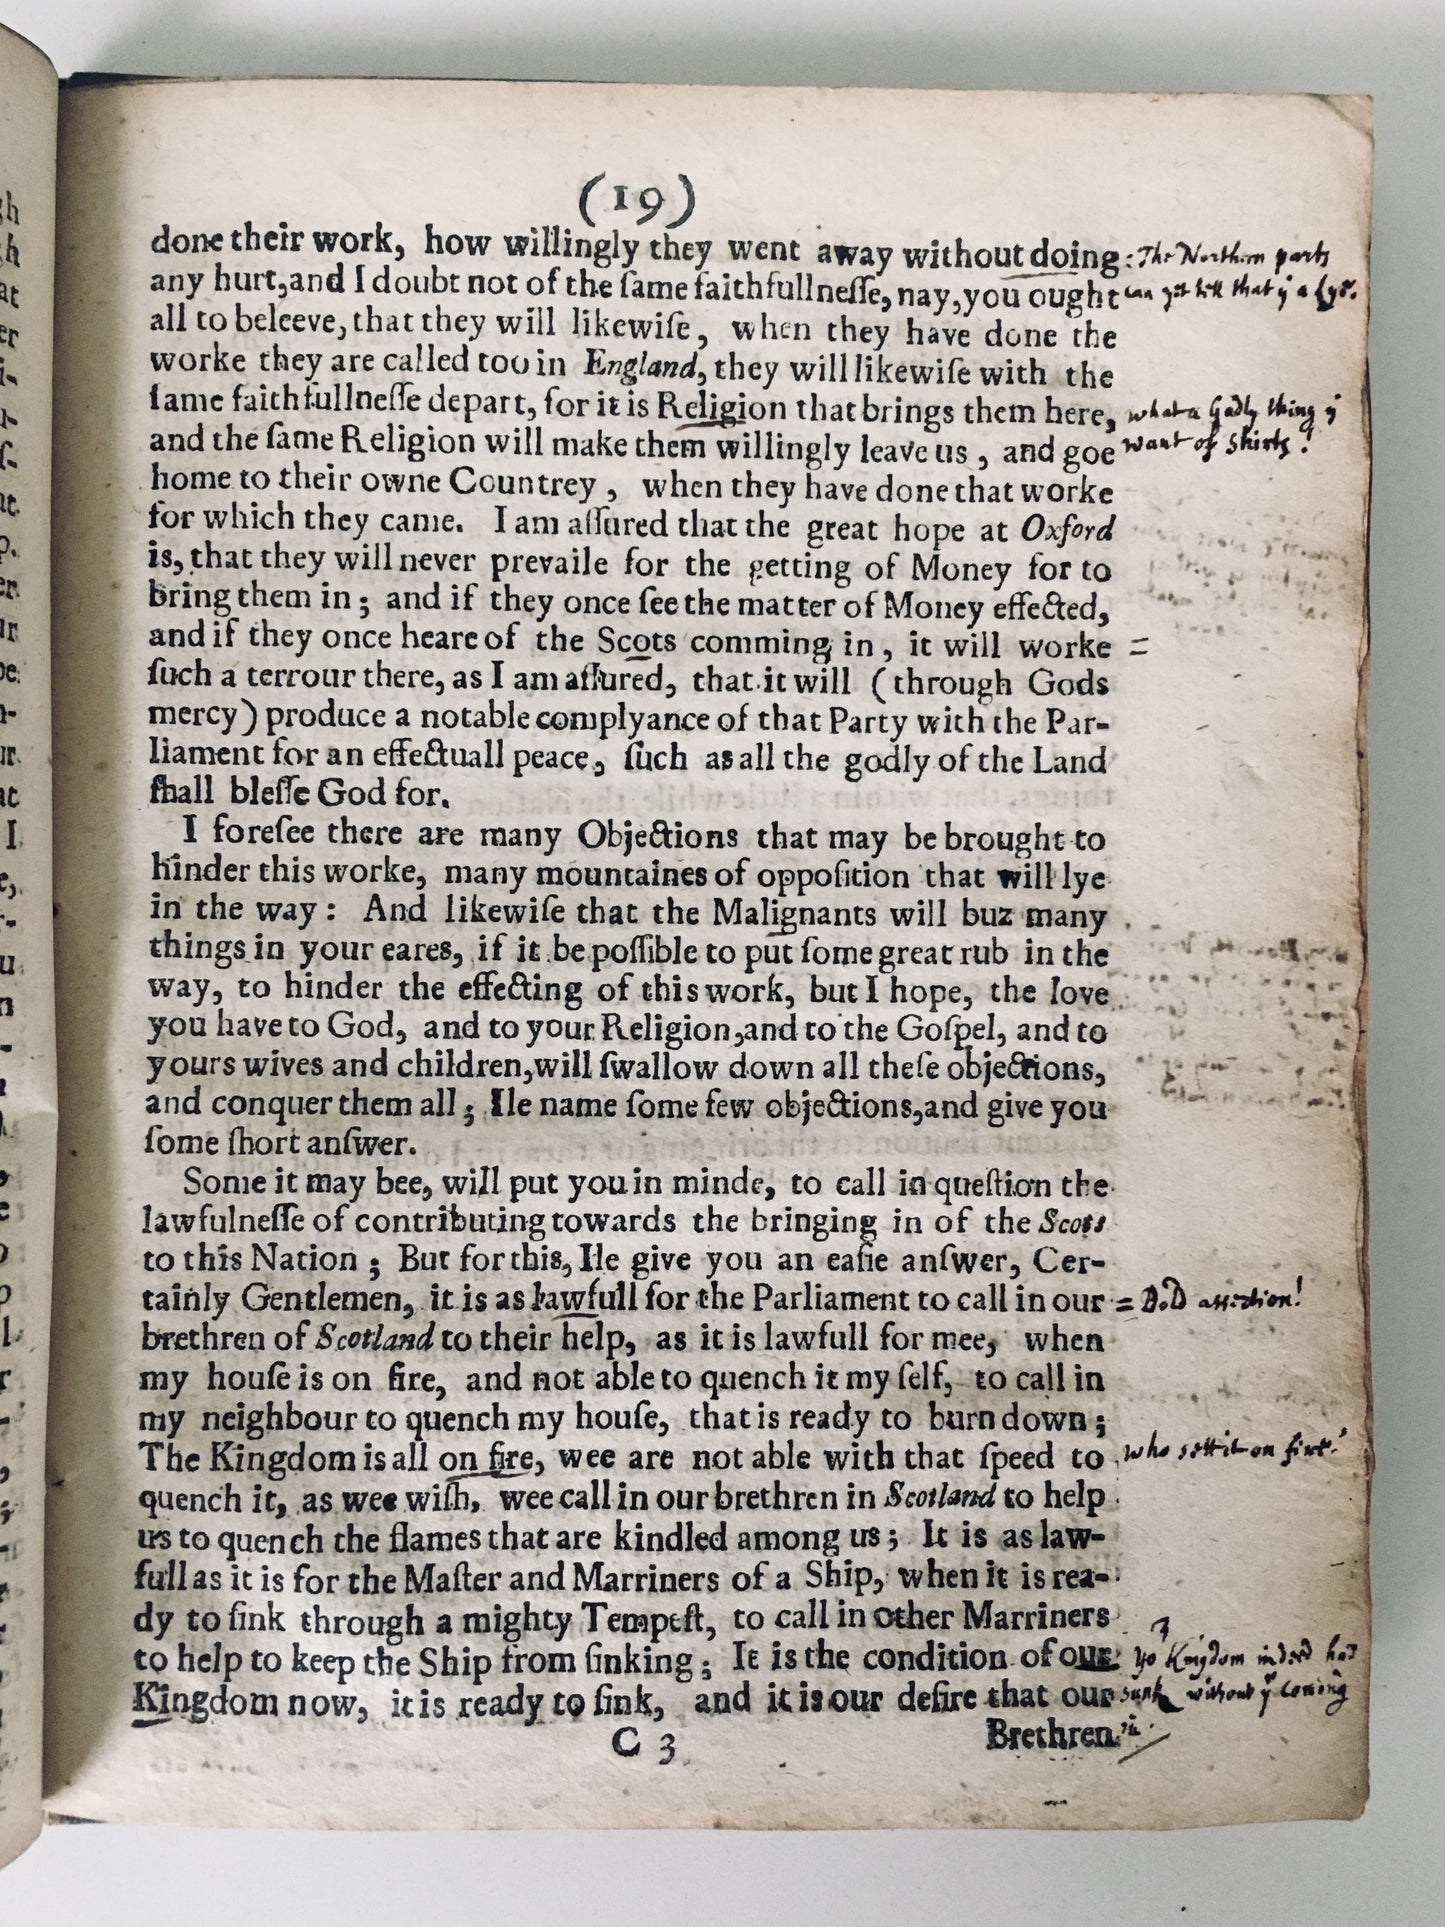 (19)
done their work, how willingly they went away without doing : The Northern parts
any hurt, and I doubt not of the ſame faithfullneſſe, nay, you ought can yet tell that ẏ a lye.
all to beleeve, that they will likewiſe, when they have done the
worke they are called too in England, they will likewiſe with the
ſame faithfullneſſe depart, for it is Religion that brings them here, what a Godly thing ẏ
and the ſame Religion will make them willingly leave us, and goe want of shirts!
home to their owne Countrey, when they have done that worke
for which they came. I am aſſured that the great hope at Oxford
is, that they will never prevaile for the getting of Money for to
bring them in; and if they once ſee the matter of Money effected,
and if they once heare of the Scots comming in, it will worke =
ſuch a terrour there, as I am aſſured, that it will (through Gods
mercy) produce a notable complyance of that Party with the Par-
liament for an effectuall peace, ſuch as all the godly of the Land
ſhall bleſſe God for.
I foreſee there are many Objections that may be brought to
hinder this worke, many mountaines of oppoſition that will lye
in the way: And likewiſe that the Malignants will buz many
things in your eares, if it be poſſible to put ſome great rub in the
way, to hinder the effecting of this work, but I hope, the love
you have to God, and to your Religion, and to the Goſpel, and to
yours wives and children, will ſwallow down all theſe objections,
and conquer them all; Ile name ſome few objections, and give you
ſome ſhort anſwer.
Some it may bee, will put you in minde, to call in queſtion the
lawfulneſſe of contributing towards the bringing in of the Scots
to this Nation; But for this, Ile give you an eaſie anſwer, Cer-
tainly Gentlemen, it is as lawfull for the Parliament to call in our = Bold assertion!
brethren of Scotland to their help, as it is lawfull for mee, when
my houſe is on fire, and not able to quench it my ſelf, to call in
my neighbour to quench my houſe, that is ready to burn down;
The Kingdom is all on fire, wee are not able with that ſpeed to who sett it on fire?
quench it, as wee wiſh, wee call in our brethren in Scotland to help
us to quench the flames that are kindled among us; It is as law-
full as it is for the Maſter and Marriners of a Ship, when it is rea-
dy to ſink through a mighty Tempeſt, to call in other Marriners
to help to keep the Ship from ſinking; It is the condition of our yo Kingdom indeed had
Kingdom now, it is ready to ſink, and it is our deſire that our sunk without ẏ coming
C 3 Brethren in.